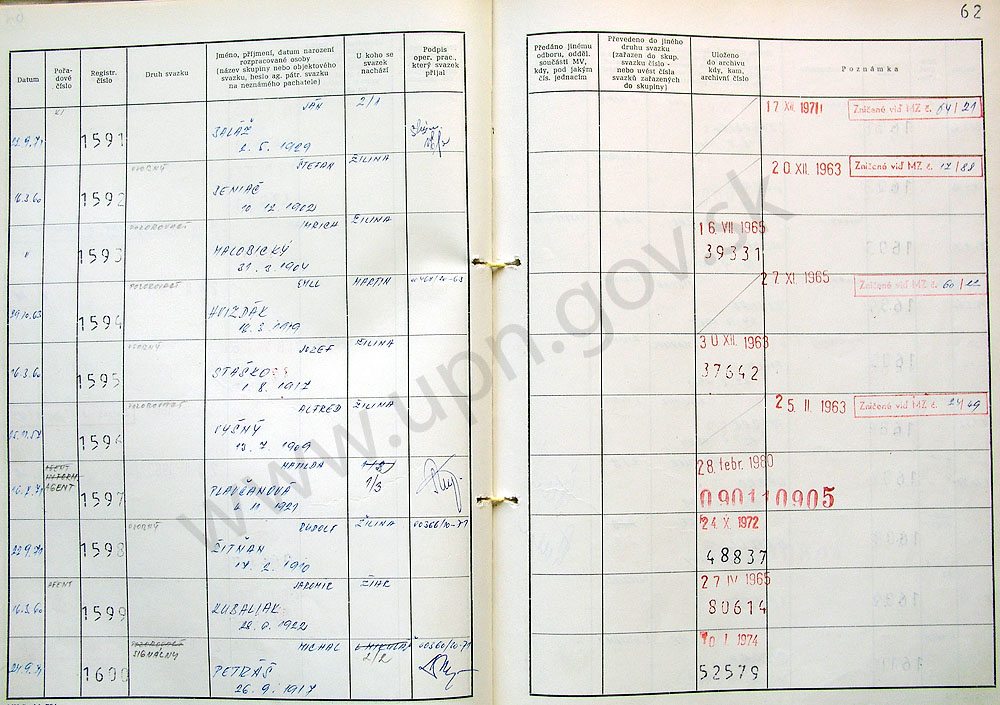 62
Datum
Pořa-
dové
číslo
Registr.
číslo
Druh svazku
Jméno, příjmení, datum narození
rozpracované osoby
(název skupiny nebo objektového
svazku, heslo ag. pátr. svazku
na neznámého pachatele)
U koho se
svazek
nachází
Podpis
oper. prac.,
který svazek
přijal
Předáno jinému
odboru, odděl.
součásti MV,
kdy, pod jakým
čís. jednacím
Převedeno do jiného
druhu svazku
(zařazen do skup.
svazku číslo -
nebo uvést čísla
svazků zařazených
do skupiny)
Uloženo
do archivu
kdy, kam,
archivní číslo
Poznámka
1591 JÁN 2/1
BALÁŽ
2. 5. 1929
17 XII. 1971 Zničené viď MZ č. 64/21
16.3.60 1592 OSOBNÝ ŠTEFAN ŽILINA
BENIAČ
10 12 1902
20 XII. 1963 Zničené viď MZ č. 17/88
" 1593 POZOROVACÍ IMRICH ŽILINA
MALOBICKÝ
31. 3. 1904
16 VII 1965
39331
29.10.63 1594 POZOROVACÍ EMIL MARTIN
HVIZDÁK
27 XI. 1965 Zničené viď MZ č. 60/22
16.3.60 1595 OSOBNÝ JOZEF ŽILINA
STAŠKO
1. 8. 1917
30 XII. 1963
37642
1596 POZOROVACÍ ALFRED ŽILINA
VYŠNÝ
13. 7. 1909
25. II. 1963 Zničené viď MZ č. 24/49
1597 AGENT MATILDA 1/3
PLAVČANOVÁ
6 11 1921
28. febr. 1960
090110905
22.9.71 1598 OSOBNÝ RUDOLF ŽILINA 00366/10-71
ŽITŇAN
14 2. 1910
24. X. 1972
48837
16.3.60 1599 AGENT JAROMIR ŽIAR
KUBALIAK
1922
27 IV 1965
80614
24.9.71 1600 SIGNÁLNY MICHAL 2/2 00360/10-71
PETRÁŠ
26. 9. 1917
10 I 1974
52579
www.upn.gov.sk